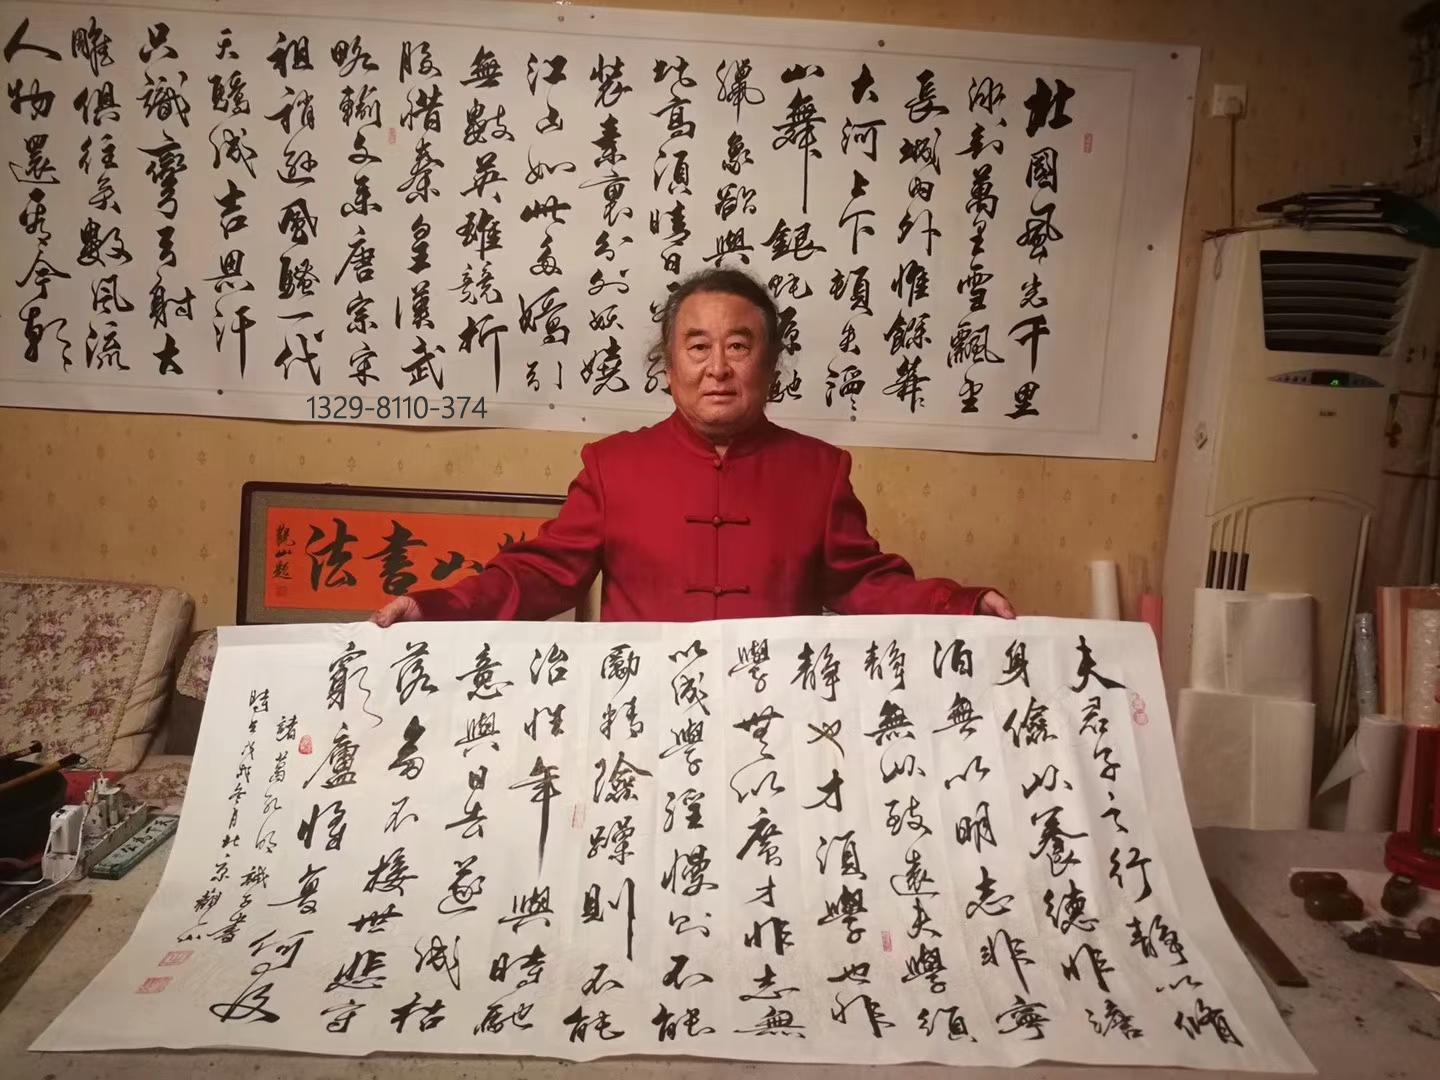 北國風光千里
冰封萬里雪飄望
長城內外惟餘莽々
大河上下頓失滔々
山舞銀蛇原馳
臘象欲與
比高須晴日
裝素裹分外妖嬈
江山如此多嬌引
無數英雄競折
腰惜秦皇漢武
略輸文采唐宗宋
祖稍遜風騷一代
天驕成吉思汗
只識彎弓射大
雕俱往矣數風流
人物還看今朝
1329-8110-374
山書法
觀山題
夫君子之行靜以脩
身儉以養德非澹
泊無以明志非寧
靜無以致遠夫學須
靜也才須學也非
學無以廣才非志無
以成學淫慢則不能
勵精險躁則不能
治性年與時馳
意與日去遂成枯
落多不接世悲守
窮廬將復何及
諸葛孔明誡子書
時在戊戌冬月北京觀山